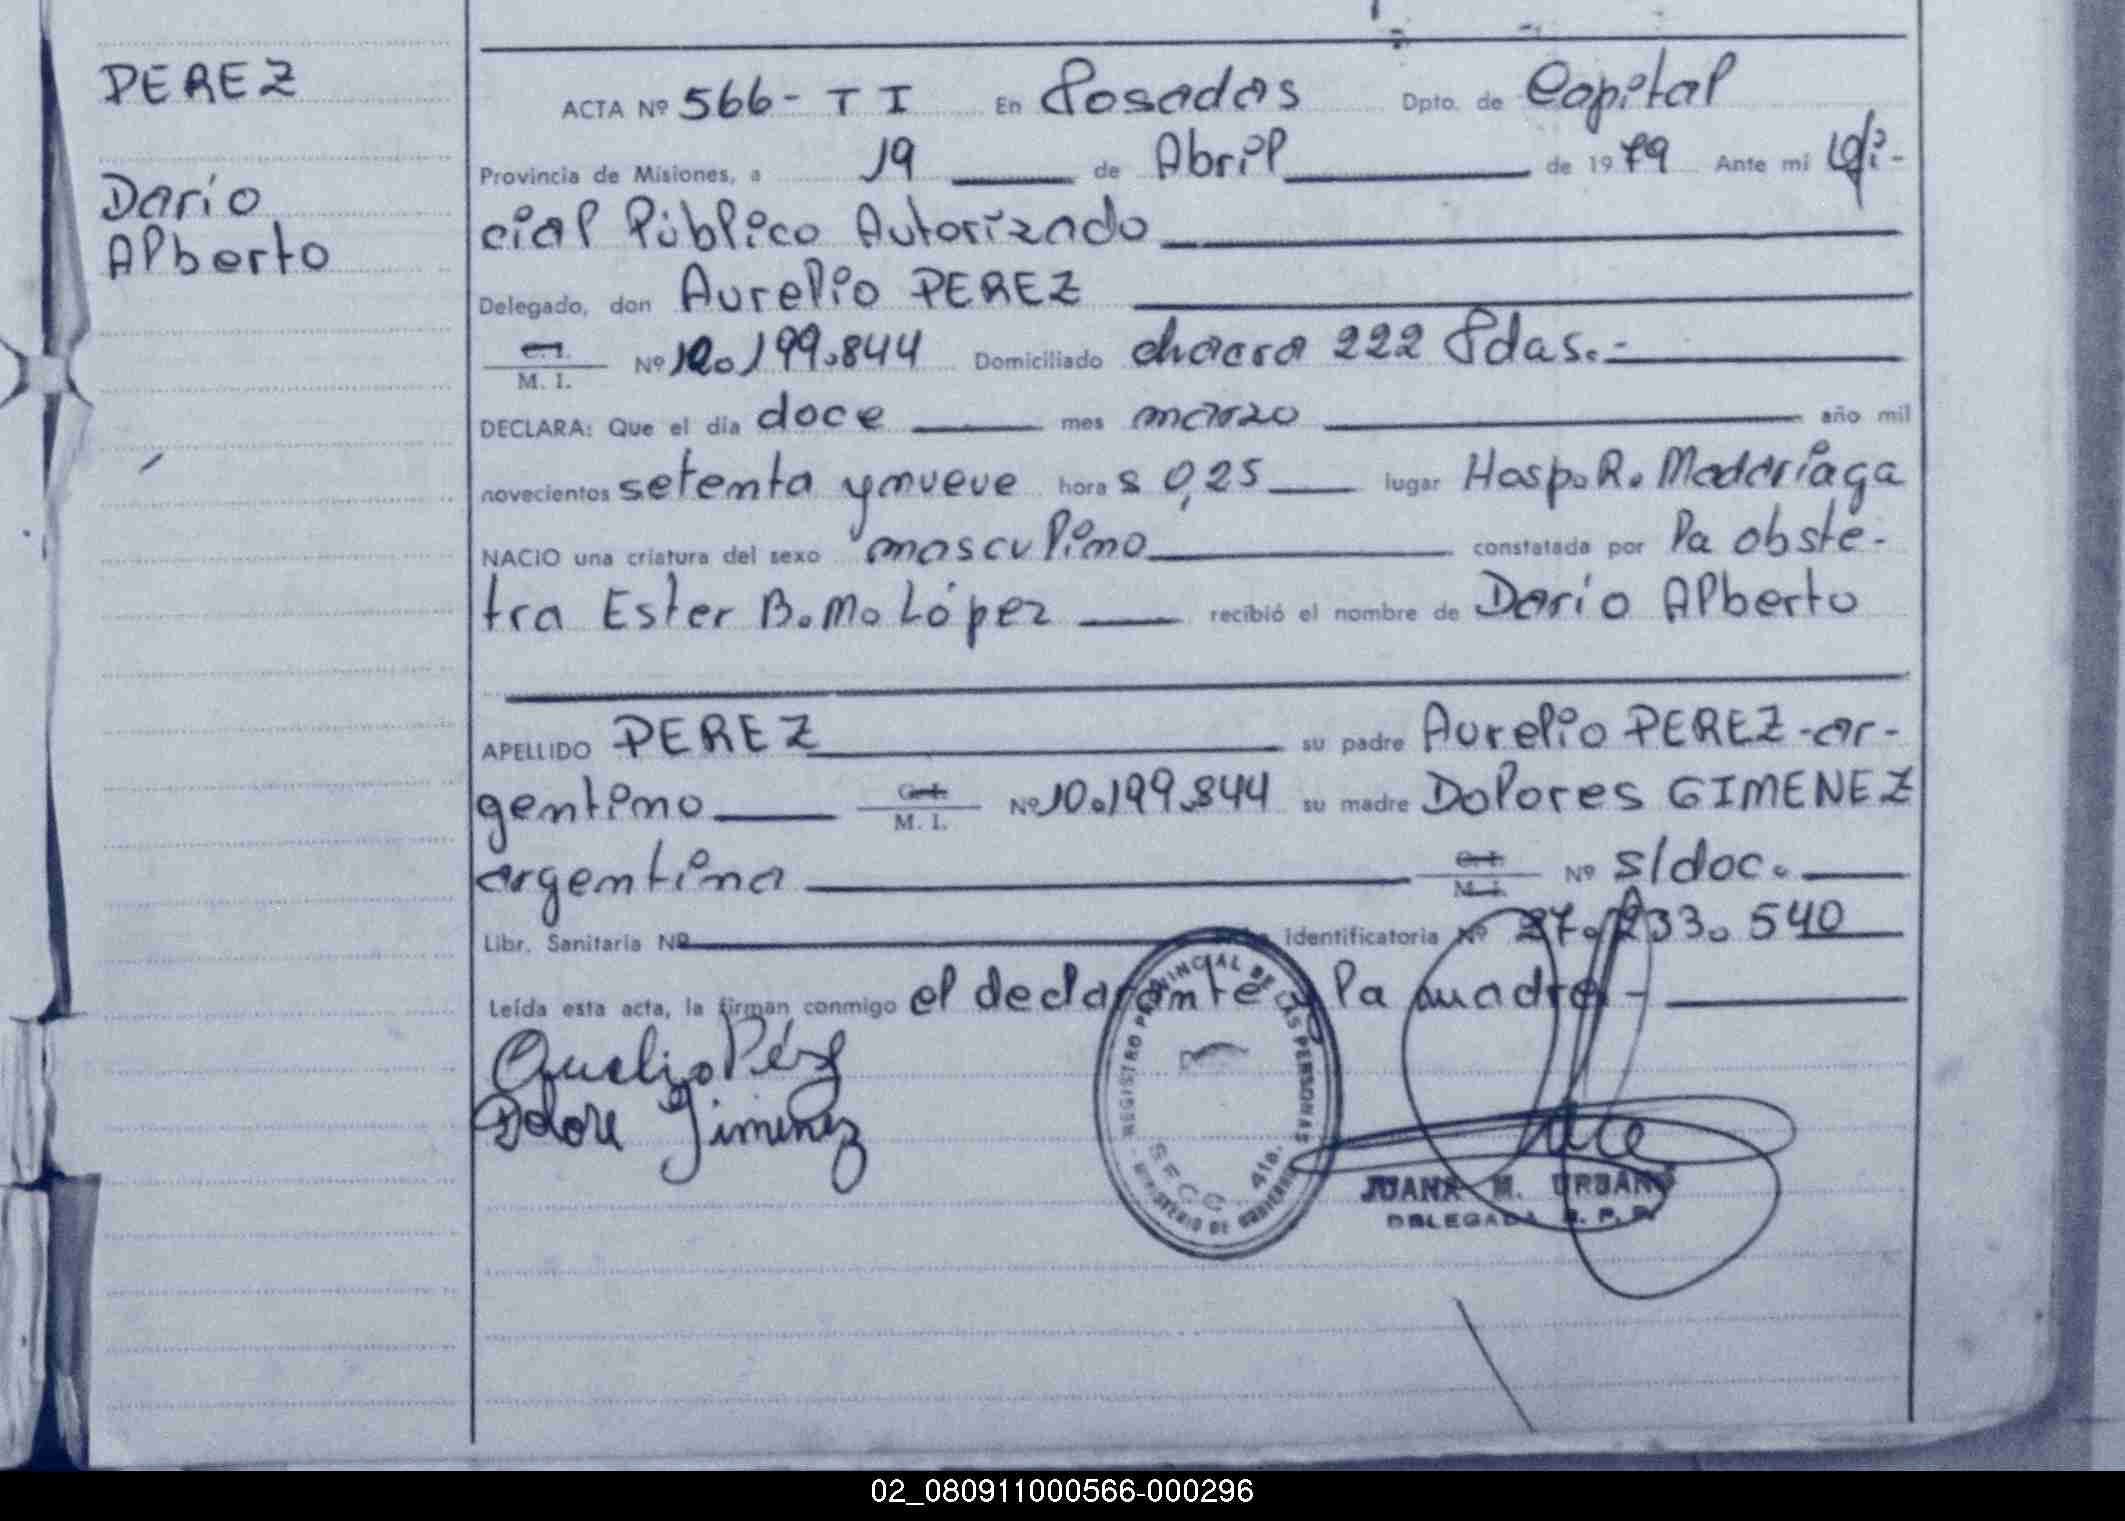 PEREZ
Darío
Alberto
ACTA Nº 566- T I En Posadas Dpto. de Capital
Provincia de Misiones, a 19 de Abril de 1979 Ante mi Ofi-
cial Público Autorizado
Delegado, don Aurelio PEREZ
C.I. M. I. Nº 10.199.844 Domiciliado chacra 222 Pdas.-
DECLARA: Que el día doce mes marzo año mil
novecientos setenta y nueve horas 0,25 lugar Hosp.R.Madariaga
NACIO una criatura del sexo masculino constatada por la obste-
tra Ester B.M. López recibió el nombre de Darío Alberto
APELLIDO PEREZ su padre Aurelio PEREZ-ar-
gentino C.I. M. I. Nº 10.199.844 su madre Dolores GIMENEZ
argentina C.I. M. I. Nº s/doc.
Libr. Sanitaria Nº Identificatoria Nº 27.233.540
Leída esta acta, la firman conmigo el declarante y la madre-
Aurelio Pérez
Dolore Jimenez
REGISTRO PROVINCIAL DE LAS PERSONAS
MINISTERIO DE GOBIERNO
SECC. 4ta.
JUANA M. URBANO
DELEGADA R. P. P.
02_080911000566-000296